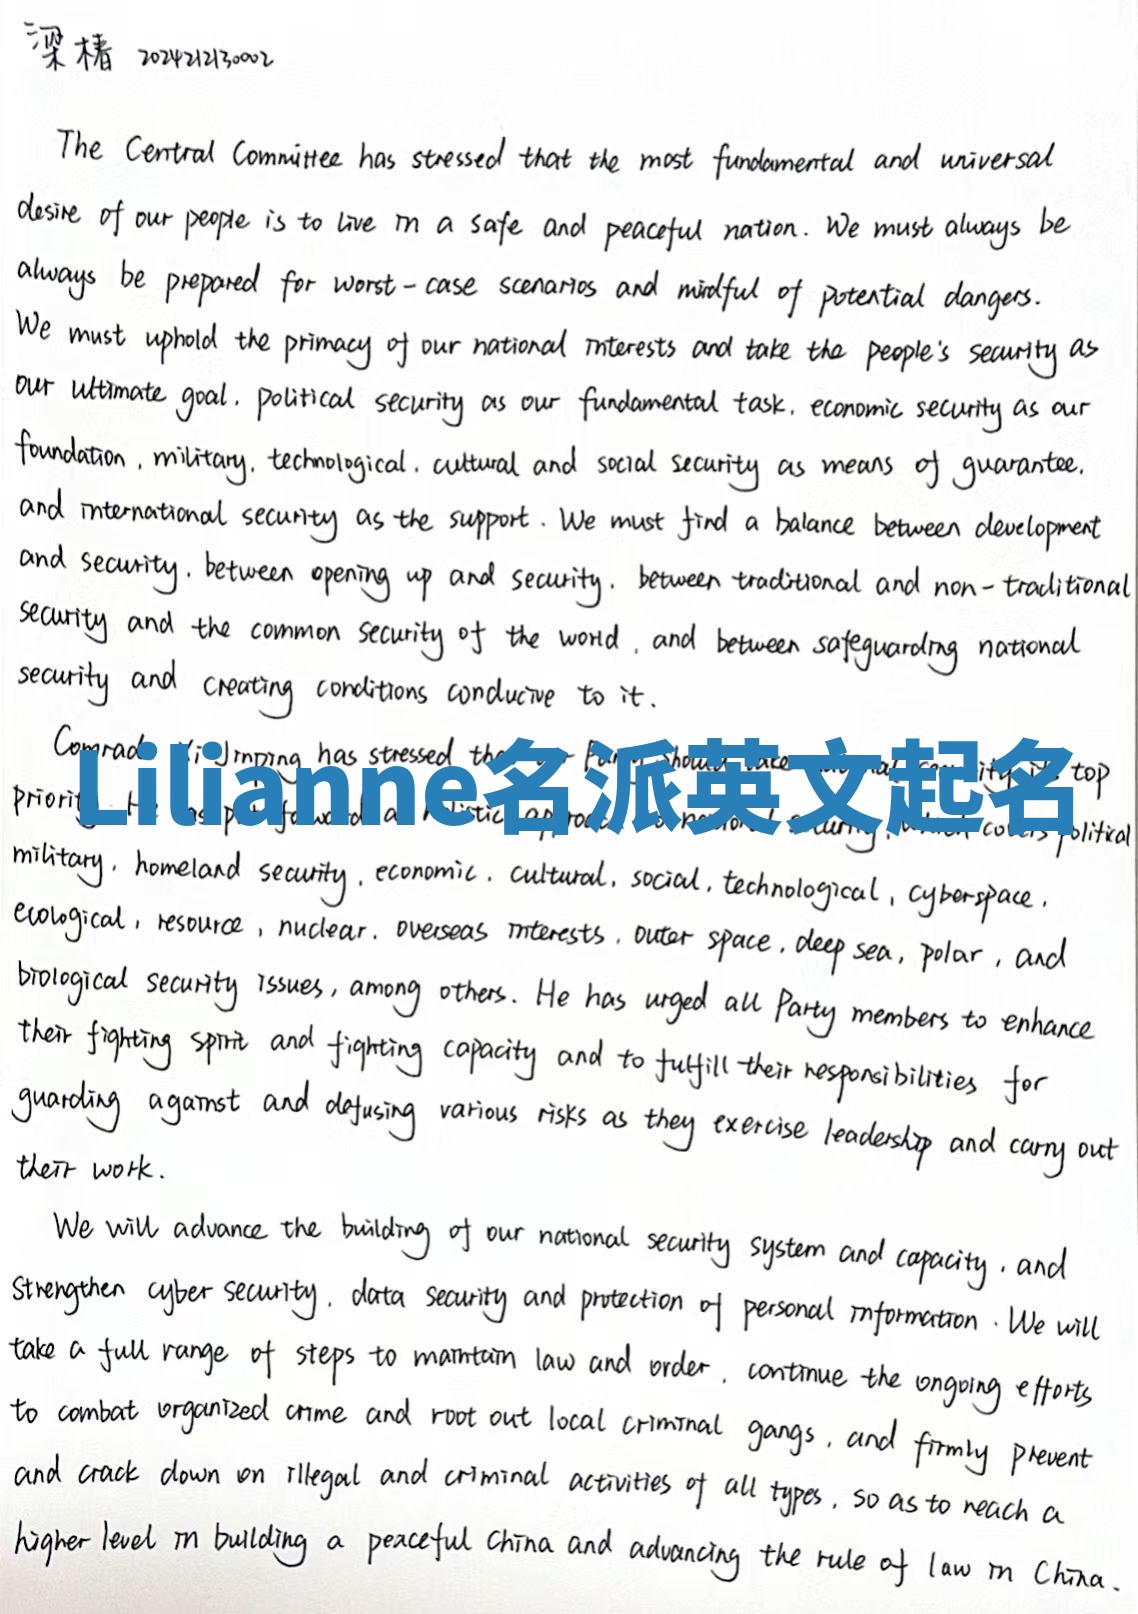 梁椿 2024212130002
The Central Committee has stressed that the most fundamental and universal
desire of our people is to live in a safe and peaceful nation. We must always be
always be prepared for worst-case scenarios and mindful of potential dangers.
We must uphold the primacy of our national interests and take the people's security as
our ultimate goal, political security as our fundamental task, economic security as our
foundation, military, technological, cultural and social security as means of guarantee,
and international security as the support. We must find a balance between development
and security, between opening up and security, between traditional and non-traditional
security and the common security of the world, and between safeguarding national
security and creating conditions conducive to it.
Comrade Xi Jinping has stressed should take top
Lilianne名派英文起名
priority. He has put forward a holistic approach to national security, which covers political
military, homeland security, economic, cultural, social, technological, cyberspace,
ecological, resource, nuclear, overseas interests, outer space, deep sea, polar, and
biological security issues, among others. He has urged all Party members to enhance
their fighting spirit and fighting capacity and to fulfill their responsibilities for
guarding against and defusing various risks as they exercise leadership and carry out
their work.
We will advance the building of our national security system and capacity, and
strengthen cyber security, data security and protection of personal information. We will
take a full range of steps to maintain law and order, continue the ongoing efforts
to combat organized crime and root out local criminal gangs, and firmly prevent
and crack down on illegal and criminal activities of all types, so as to reach a
higher level in building a peaceful China and advancing the rule of law in China.